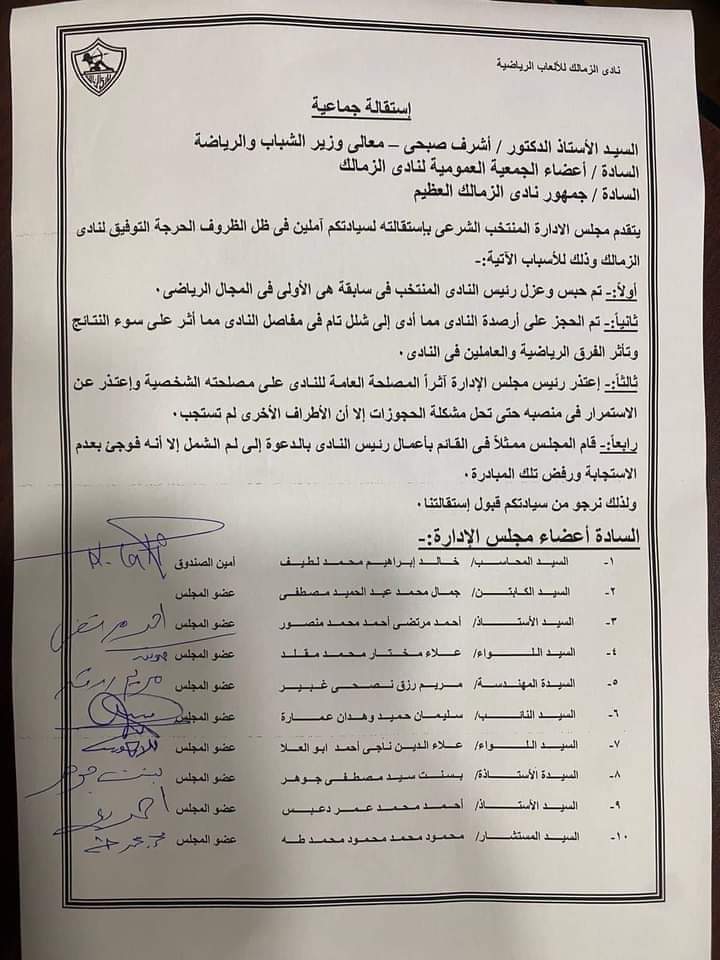 نادى الزمالك للألعاب الرياضية
إستقالة جماعية
السيد الأستاذ الدكتور / أشرف صبحى – معالى وزير الشباب والرياضة
السادة / أعضاء الجمعية العمومية لنادى الزمالك
السادة / جمهور نادى الزمالك العظيم
يتقدم مجلس الادارة المنتخب الشرعى بإستقالته لسيادتكم آملين فى ظل الظروف الحرجة التوفيق لنادى
الزمالك وذلك للأسباب الآتية:-
أولاً:- تم حبس وعزل رئيس النادى المنتخب فى سابقة هى الأولى فى المجال الرياضى .
ثانياً:- تم الحجز على أرصدة النادى مما أدى إلى شلل تام فى مفاصل النادى مما أثر على سوء النتائج
وتأثر الفرق الرياضية والعاملين فى النادى .
ثالثاً:- إعتذر رئيس مجلس الإدارة آثراً المصلحة العامة للنادى على مصلحته الشخصية وإعتذر عن
الاستمرار فى منصبه حتى تحل مشكلة الحجوزات إلا أن الأطراف الأخرى لم تستجب .
رابعاً:- قام المجلس ممثلاً فى القائم بأعمال رئيس النادى بالدعوة إلى لم الشمل إلا أنه فوجئ بعدم
الاستجابة ورفض تلك المبادرة .
ولذلك نرجو من سيادتكم قبول إستقالتنا .
السادة أعضاء مجلس الإدارة:-
١- السيد المحاسب/ خالد إبراهيم محمد لطيف أمين الصندوق
٢- السيد الكابتن/ جمال محمد عبد الحميد مصطفى عضو المجلس
٣- السيد الأستاذ/ أحمد مرتضى أحمد محمد منصور عضو المجلس احمد مرتضى
٤- السيد اللواء/ علاء مختار محمد مقلد عضو المجلس
٥- السيدة المهندسة/ مريم رزق نصحى غبير عضو المجلس مريم رزق
٦- السيد النائب/ سليمان حميد وهدان عمارة عضو المجلس
٧- السيد اللواء/ علاء الدين ناجى أحمد ابو العلا عضو المجلس
٨- السيدة الأستاذة/ بسنت سيد مصطفى جوهر عضو المجلس بسنت جوهر
٩- السيد الأستاذ/ أحمد محمد عمر دعبس عضو المجلس
١٠- السيد المستشار/ محمود محمد محمود محمد طه عضو المجلس